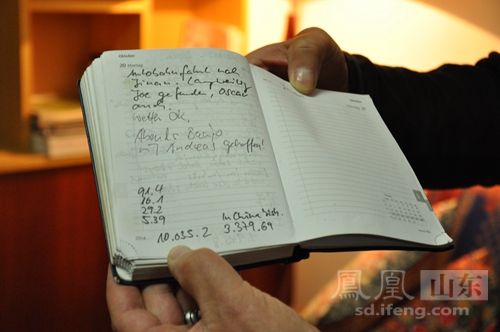 Oktober
20 Montag
Autobahnfahrt nach
Jinan. Langweilig
Joe gefunden, Oscar
auch.
Wetter OK,
Abends Banjo
mit Andreas getroffen!
91.4
16.1
29.2
5.39
10.035.2
In China
3.379.69
凤凰 山东
sd.ifeng.com